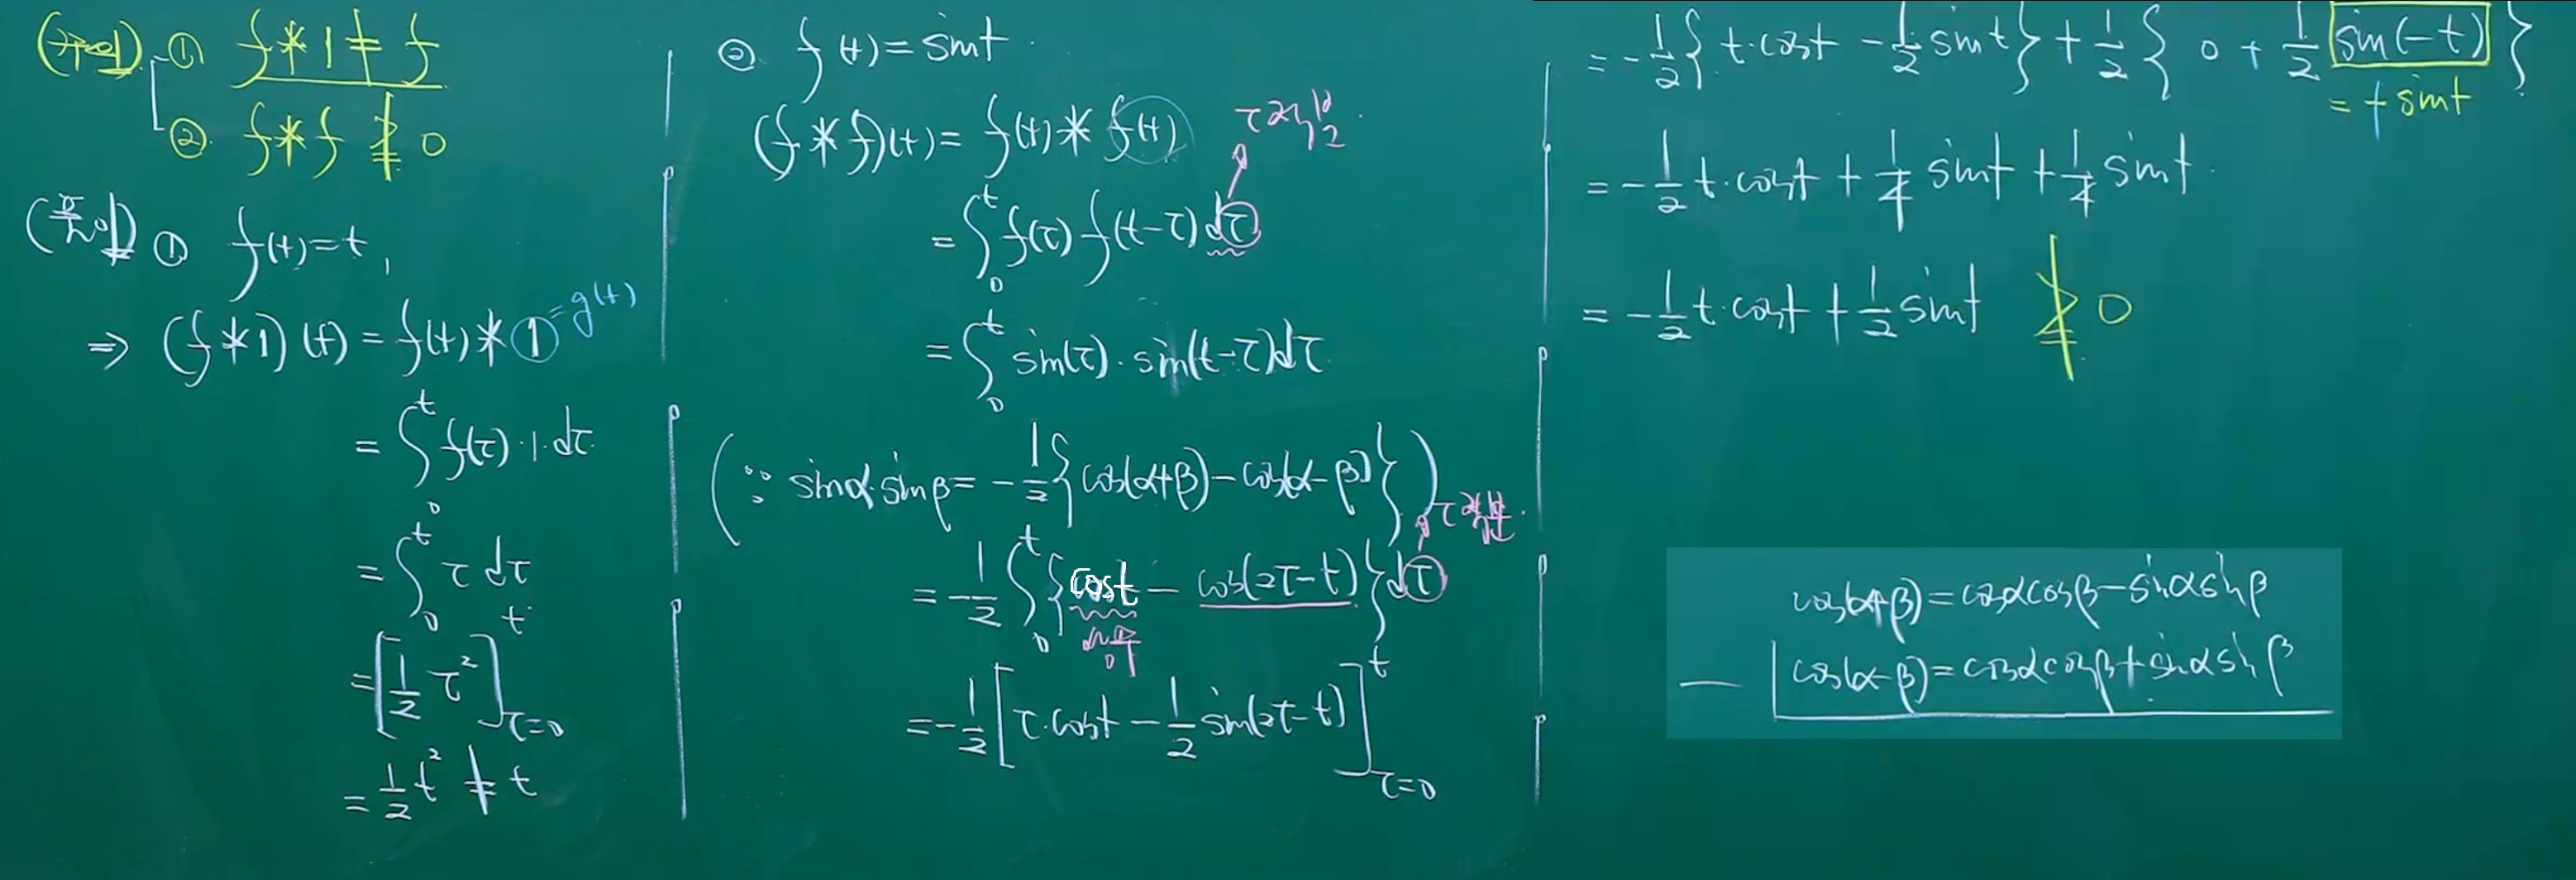 (주의) ① f * 1 ≠ f
② f * f ≱ 0
(풀이) ① f(t) = t,
⇒ (f * 1)(t) = f(t) * ① = g(t)
= ∫₀ᵗ f(τ)·1·dτ
= ∫₀ᵗ τ dτ
= [1/2 τ²]_{τ=0}^{t}
= 1/2 t² ≠ t
② f(t) = sint
(f * f)(t) = f(t) * f(t)
= ∫₀ᵗ f(τ) f(t-τ) dτ
= ∫₀ᵗ sin(τ)·sin(t-τ)dτ
(∵ sinα·sinβ = -1/2 {cos(α+β) - cos(α-β)})
= -1/2 ∫₀ᵗ {cost - cos(2τ-t)} dτ
= -1/2 [τ·cost - 1/2 sin(2τ-t)]_{τ=0}^{t}
= -1/2 {t·cost - 1/2 sint} + 1/2 {0 + 1/2 sin(-t)}
= + sint
= -1/2 t·cost + 1/4 sint + 1/4 sint
= -1/2 t·cost + 1/2 sint ≱ 0
cos(α+β) = cosαcosβ - sinαsinβ
— cos(α-β) = cosαcosβ + sinαsinβ